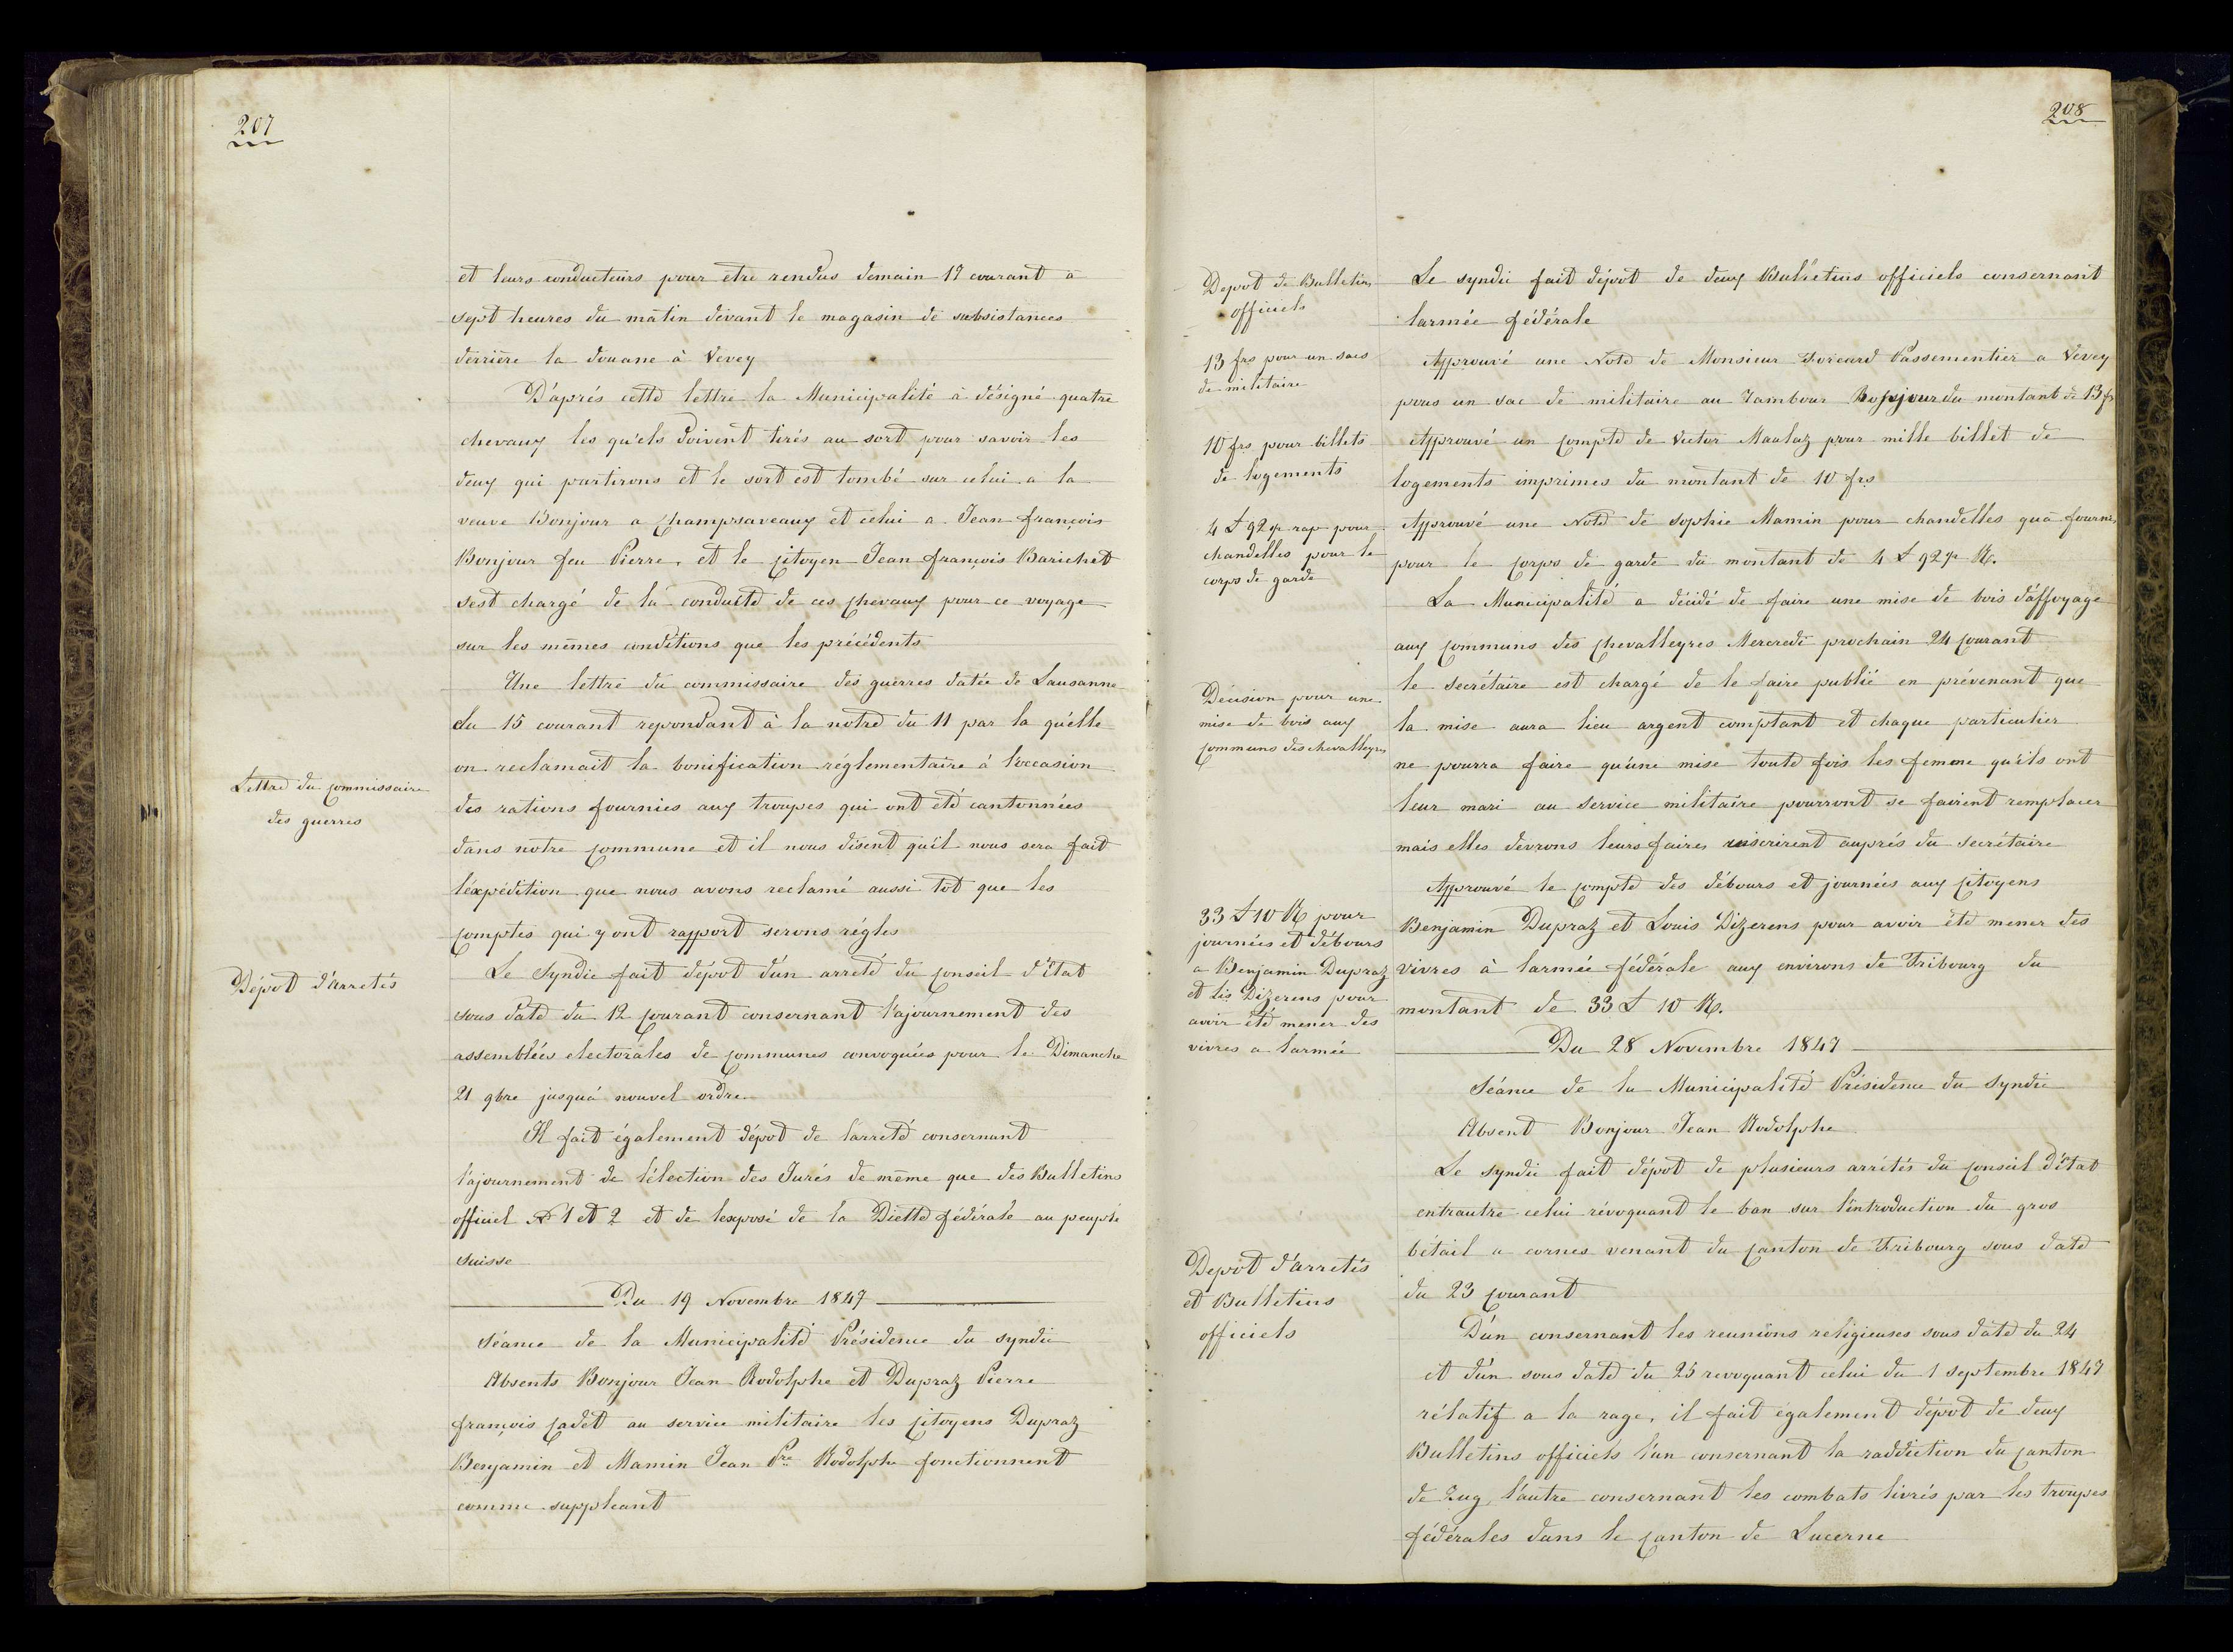 207
et leurs conducteurs pour etre rendus demain 17 courant à
sept heures du matin devant le magasin de subsistances
derrière la douane à Vevey
D'après cette lettre la Municipalité à désigné quatre
chevaux les qu'els doivent tirés au sort pour savoir les
deux qui partirons et le sort est tombé sur celui a la
veuve Bonjour a Champsaveaux et celui a Jean françois
Bonjour feu Pierre, et le citoyen Jean françois Barichet
sest chargé de la conduite de ces chevaux pour ce voyage
sur les mêmes conditions que les précédents
Lettre du commissaire
des guerres
Une lettre du commissaire des guerres datée de Lausanne
du 15 courant repondant à la notre du 11 par la qu'elle
on reclamait la bonification réglementaire à l'occasion
des rations fournies aux troupes qui ont été cantonnées
dans notre commune et il nous disent qu'il nous sera fait
l'éxpédition que nous avons reclamé aussi tot que les
comptes qui y ont rapport serons régles
Dépot d'arretés
Le Syndic fait dépot d'un arreté du conseil d'état
sous date du 12 courant consernant l'ajournement des
assemblées electorales de communes convoquées pour le Dimanche
21 9bre jusqu'á nouvel ordre
Il fait également dépot de larreté consernant
l'ajournement de l'élection des Jurés de même que des Bulletins
officiel N° 1 et 2 et de lexposé de la Diette fédérale au peuple
suisse
Du 19 Novembre 1847
Séance de la Municipalité Présidence du syndic
Absents Bonjour Jean Rodolphe et Dupraz Pierre
françois cadet au service militaire les citoyens Dupraz
Benjamin et Mamin Jean Pre Rodolphe fonctionnent
comme suppleant
208
Depot de Bulletins
officiels
Le syndic fait dépot de deux Bulletins officiels consernant
larmée fédérale
13 frs pour un sacs
de militaire
Approuvé une Note de Monsieur Forcard Passementier a Vevey
pour un sac de militaire au Tambour Bonjour du montant de 13 fr
10 frs pour billets
de logements
Approuvé un compte de Victor Maalaz pour mille billet de
logements imprimes du montant de 10 frs
pour
chandelles pour le
corps de garde
Approuvé une Note de Sophie Mamin pour chandelles qu'à fournis
pour le corps de garde du montant de
Décision pour une
mise de bois aux
communs des chevalleyres
La Municipalité a décidé de faire une mise de bois d'affoyage
aux communs des chevalleyres Mercredi prochain 24 courant
le secrétaire est chargé de le faire publié en prévenant que
la mise aura lieu argent comptant et chaque particulier
ne pourra faire qu'une mise toute fois les femme qu'ils ont
leur mari au service militaire pourront se fairent remplacer
mais elles devrons leurs faires inscrirent auprés du secrétaire
33 L 10 R pour
journées et débours
a Benjamin Dupraz
et Ls Dizerens pour
avoir été mener des
vivres a larmée
Approuvé le compte des débours et journées aux citoyens
Benjamin Dupraz et Louis Dizerens pour avoir été mener des
vivres à larmée fédérale aux environs de Fribourg du
montant de 33 L 10 R.
Du 28 Novembre 1847
Séance de la Municipalité Présidence du Syndic
Absent Bonjour Jean Rodolphe
Depot d'arretés
et Bulletins
officiels
Le syndic fait dépot de plusieurs arrétés du conseil d'état
entrautre celui révoquant le ban sur l'introduction du gros
bétail a cornes venant du canton de Fribourg sous date
du 23 courant
D'un consernant les reunions religieuses sous date du 24
et d'un sous date du 25 revoquant celui du 1 septembre 1847
rélatif a la rage, il fait également dépot de deux
Bulletins officiels l'un consernant la raddiction du canton
de Zug, l'autre consernant les combats livrés par les troupes
fédérales dans le canton de Lucerne